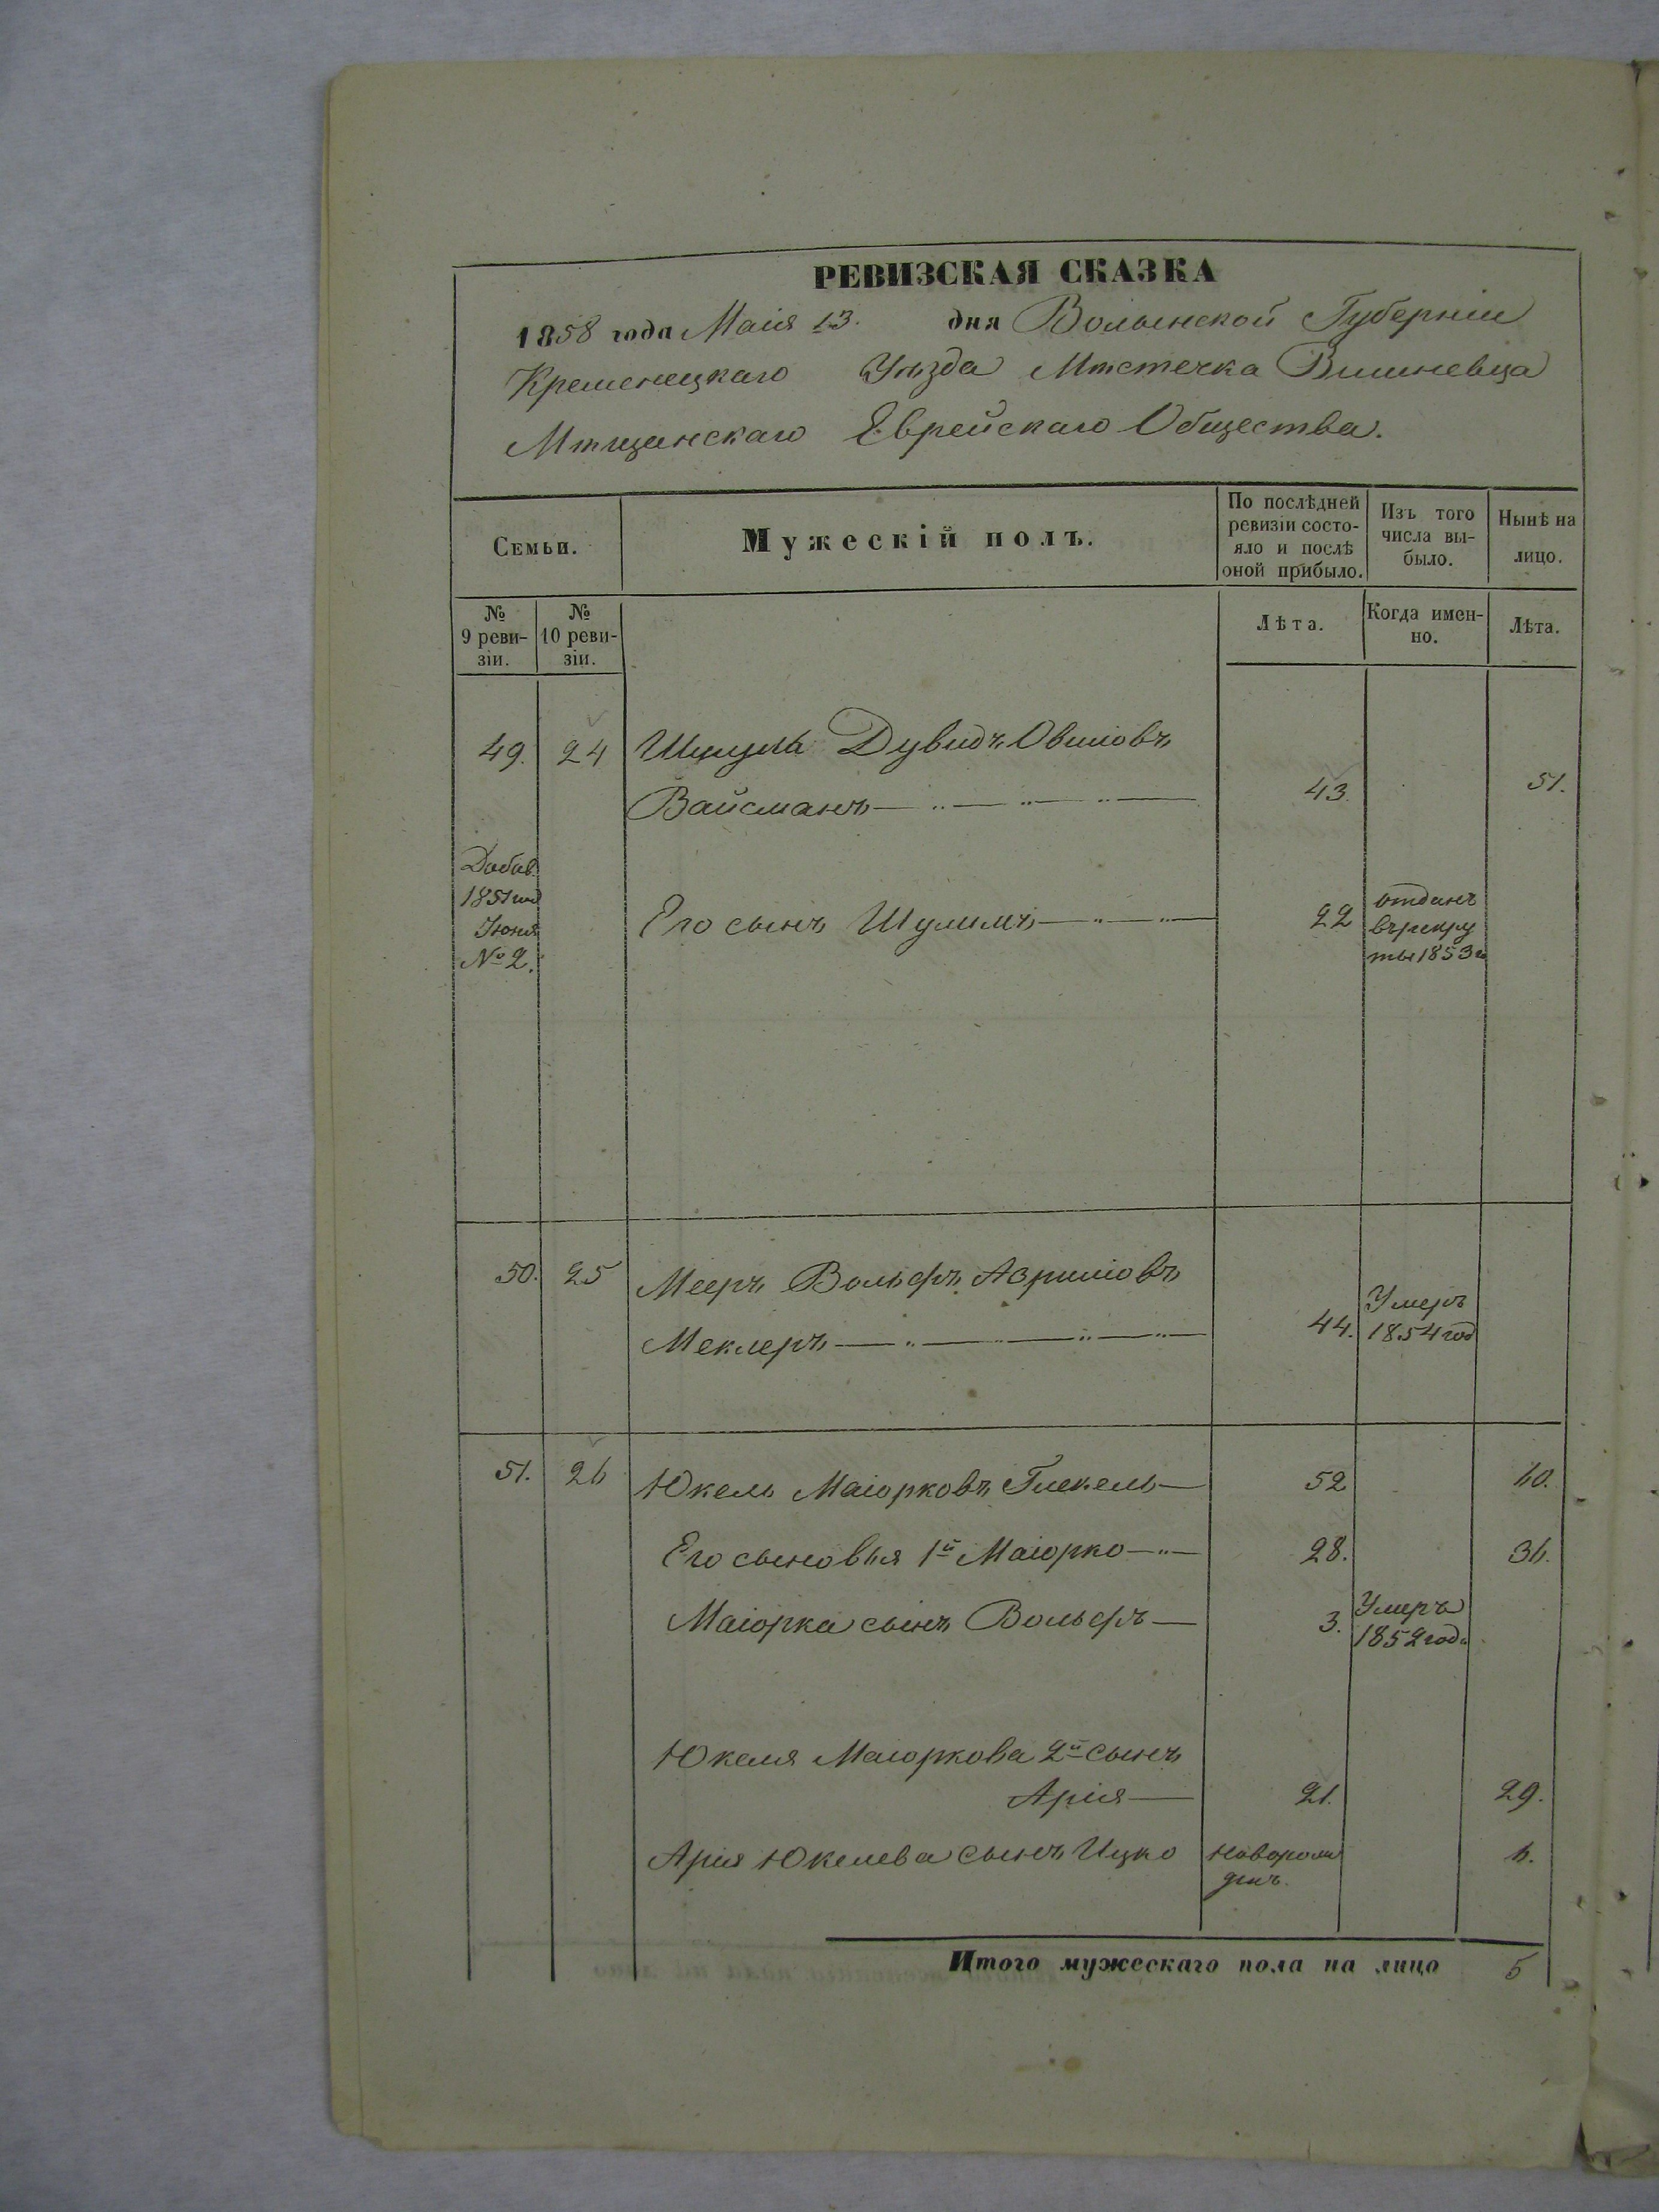 РЕВИЗСКАЯ СКАЗКА
1858 года Маія 13. дня Волынской Губерніи
Кременецкаго Уѣзда Мѣстечка Вишневца
Мѣщанскаго Еврейскаго Общества.
Семьи.
Мужескій полъ.
По послѣдней ревизіи состо-
яло и послѣ оной прибыло.
Изъ того числа вы-
было.
Нынѣ на лицо.
№ 9 реви-
зіи.
№ 10 реви-
зіи.
Лѣта.
Когда имен-
но.
Лѣта.
49. 24 Шмуль Дувидъ Овшіовъ
Вайсманъ 43. 51.
Добав.
1851 год
Іюня
№ 2.
Его сынъ Шулимъ 22
отданъ
въ рекру
ты 1853 г
50. 25 Мееръ Вольфъ Аврумовъ
Меклеръ 44.
Умеръ
1854 год
51. 26 Юкель Маіорковъ 52 60.
Его сыновья 1й Маіорко 28. 36.
Маіорка сынъ Вольфъ 3.
Умеръ
1852 года
Юкеля Маіоркова 2й сынъ
Арія 21. 29.
Арія Юкелева сынъ Ицко новорож
денъ. 6.
Итого мужескаго пола на лицо 5